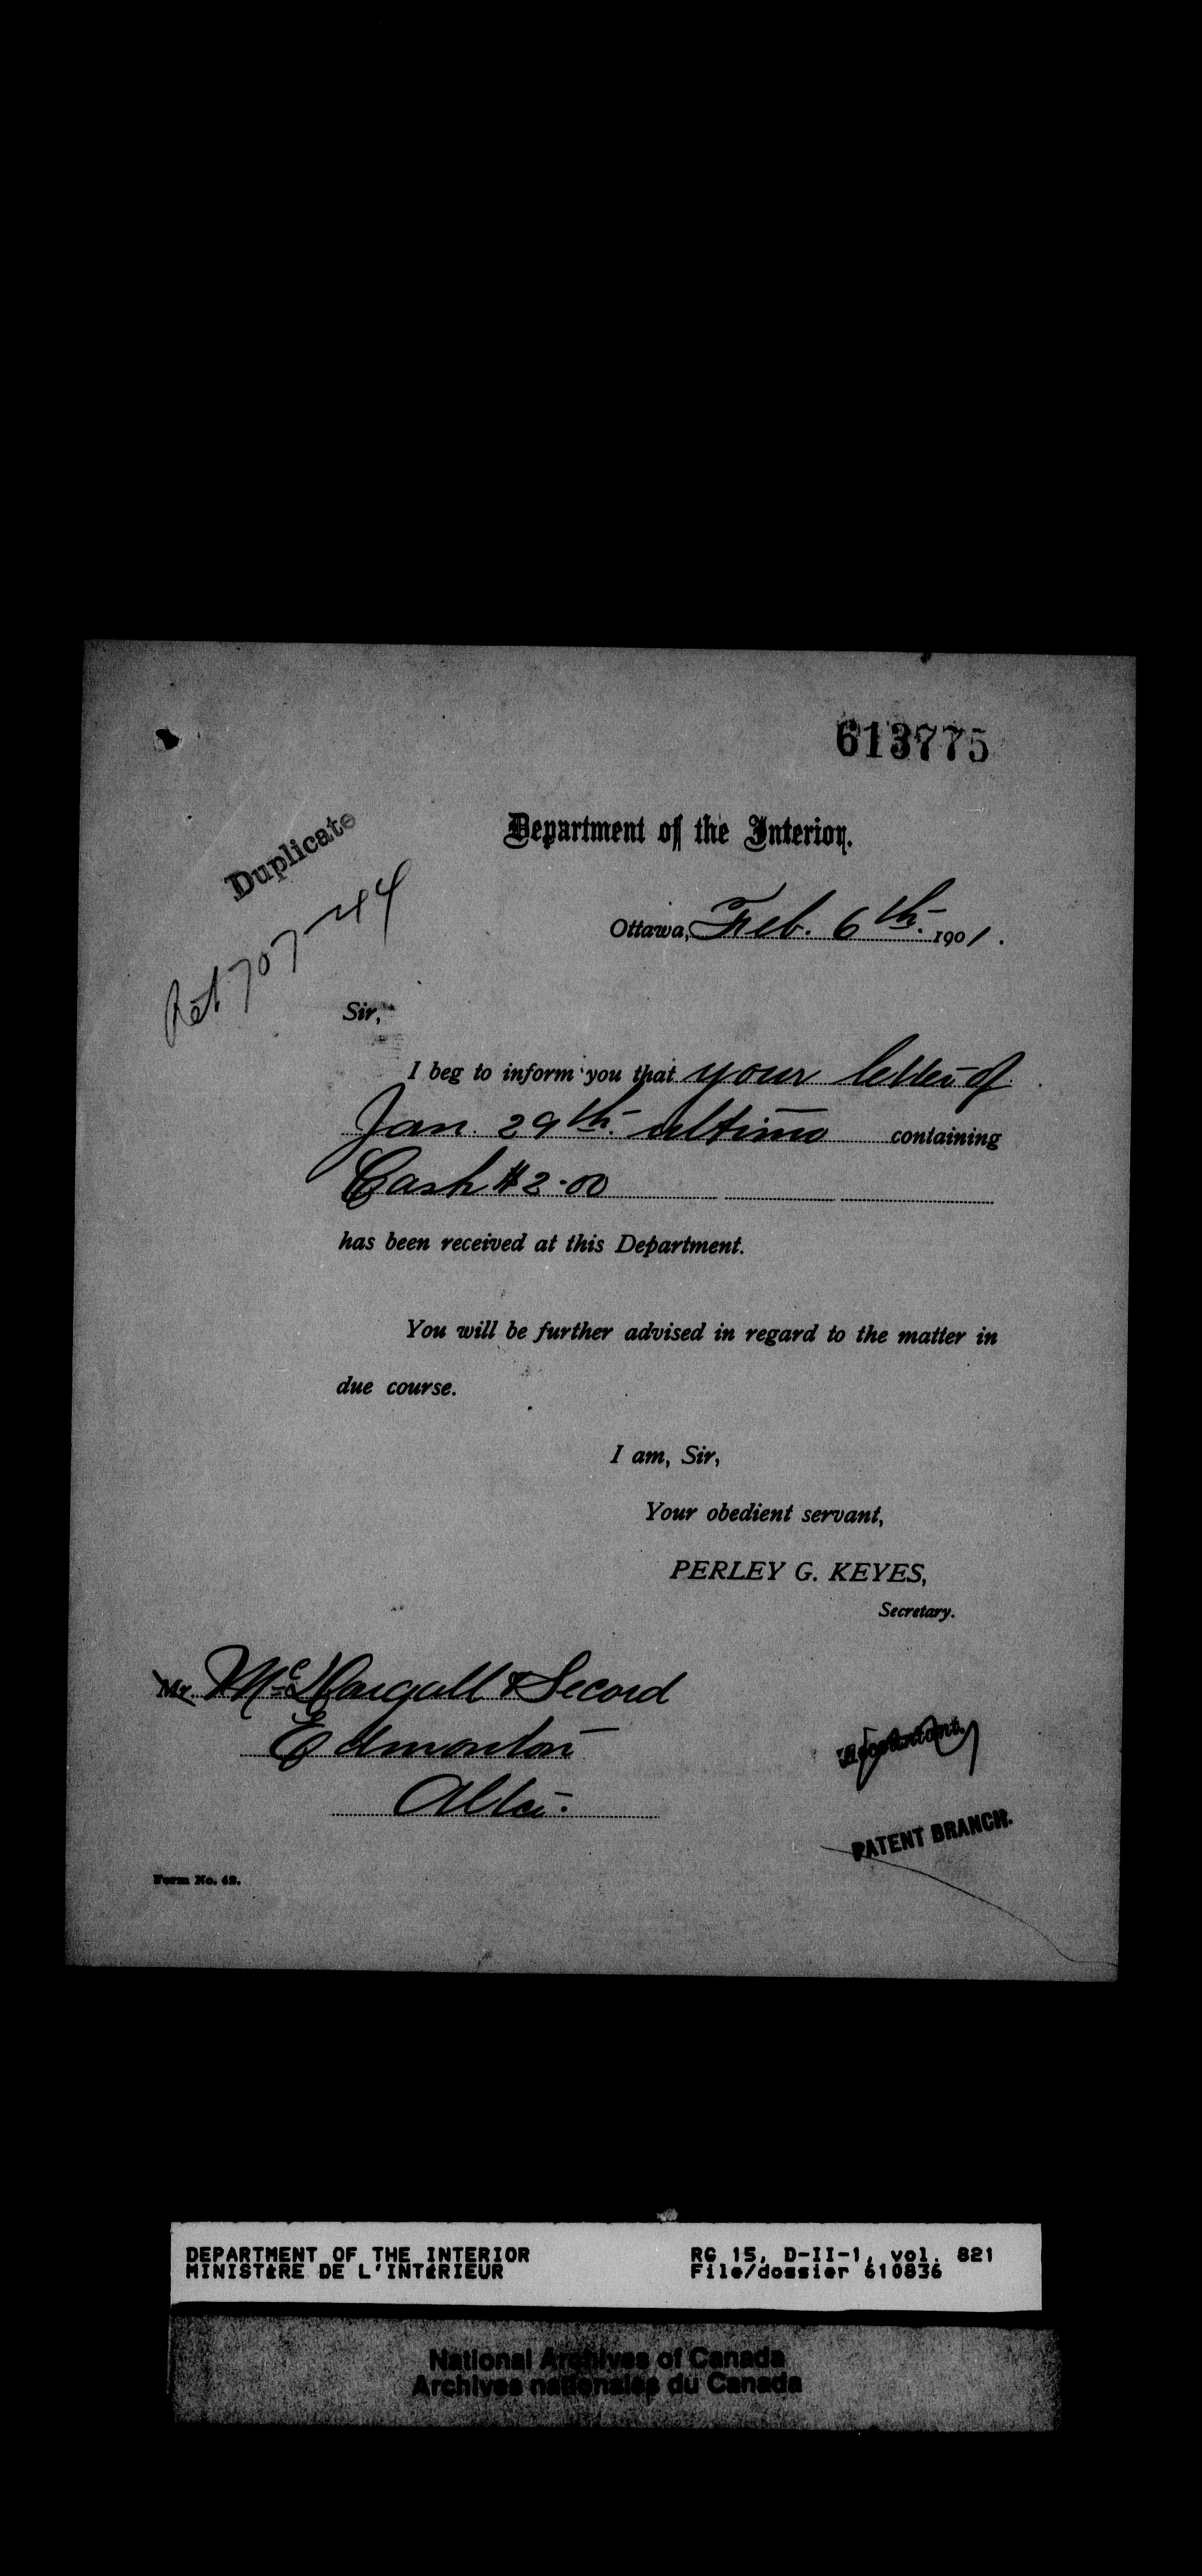 613775
Duplicate
Department of the Interior.
Ret 707744
Ottawa, Feb. 6th. 1901.
Sir,
I beg to inform you that your letter of
Jan. 29th. ultimo containing
Cash $2.00
has been received at this Department.
You will be further advised in regard to the matter in
due course.
I am, Sir,
Your obedient servant,
PERLEY G. KEYES,
Secretary.
Mr. McDougall & Secord
Edmonton
Alta.
Accountant.
PATENT BRANCH.
Form No. 42.
DEPARTMENT OF THE INTERIOR
MINISTÈRE DE L'INTÉRIEUR
RG 15, D-II-1, vol. 821
File/dossier 610836
National Archives of Canada
Archives nationales du Canada